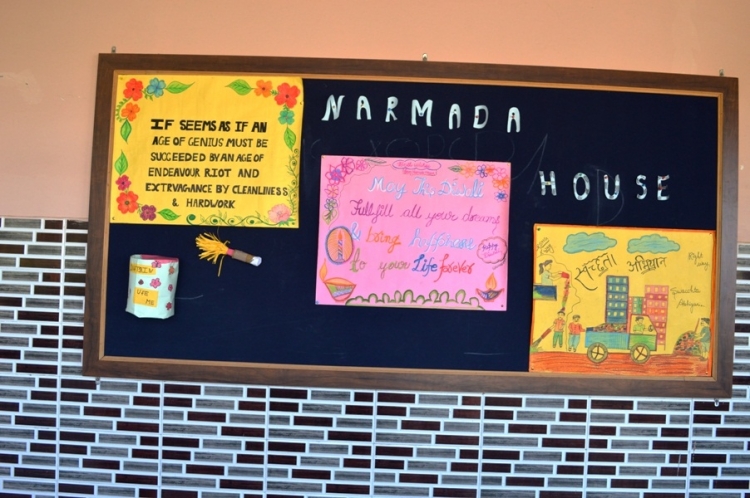 NARMADA
HOUSE
IF SEEMS AS IF AN
AGE OF GENIUS MUST BE
SUCCEEDED BY AN AGE OF
ENDEAVOUR RIOT AND
EXTRVAGANCE BY CLEANLINESS
& HARDWORK
USE
ME
May
Full fill all your
to bring
to your Life forever
स्वच्छता अभियान